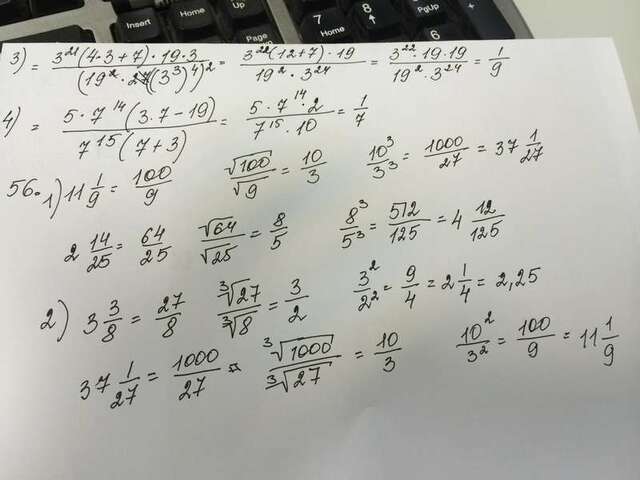 Insert Home PgUp 7 Home 8 9 PgUp
3) = 3²¹(4·3+7)·19·3 / (19²·27(3³)⁴)² = 3²²(12+7)·19 / 19²·3²⁴ = 3²²·19·19 / 19²·3²⁴ = 1/9
4) = 5·7¹⁴(3·7-19) / 7¹⁵(7+3) = 5·7¹⁴·2 / 7¹⁵·10 = 1/7
56. 1) 11 1/9 = 100/9 √100/√9 = 10/3 10³/3³ = 1000/27 = 37 1/27
2 14/25 = 64/25 √64/√25 = 8/5 8³/5³ = 512/125 = 4 12/125
2) 3 3/8 = 27/8 ³√27/³√8 = 3/2 3²/2² = 9/4 = 2 1/4 = 2,25
37 1/27 = 1000/27 ³√1000/³√27 = 10/3 10²/3² = 100/9 = 11 1/9